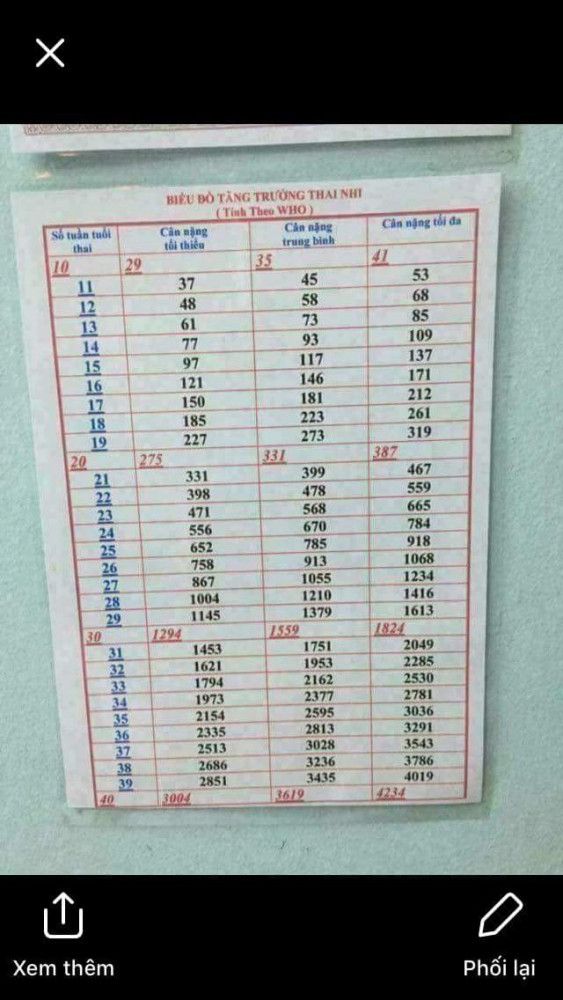 BIỂU ĐỒ TĂNG TRƯỞNG THAI NHI
( Tính Theo WHO )
Số tuần tuổi thai Cân nặng tối thiểu Cân nặng trung bình Cân nặng tối đa
10 29 35 41
11 37 45 53
12 48 58 68
13 61 73 85
14 77 93 109
15 97 117 137
16 121 146 171
17 150 181 212
18 185 223 261
19 227 273 319
20 275 331 387
21 331 399 467
22 398 478 559
23 471 568 665
24 556 670 784
25 652 785 918
26 758 913 1068
27 867 1055 1234
28 1004 1210 1416
29 1145 1379 1613
30 1294 1559 1824
31 1453 1751 2049
32 1621 1953 2285
33 1794 2162 2530
34 1973 2377 2781
35 2154 2595 3036
36 2335 2813 3291
37 2513 3028 3543
38 2686 3236 3786
39 2851 3435 4019
40 3004 3619 4234
Xem thêm Phối lại